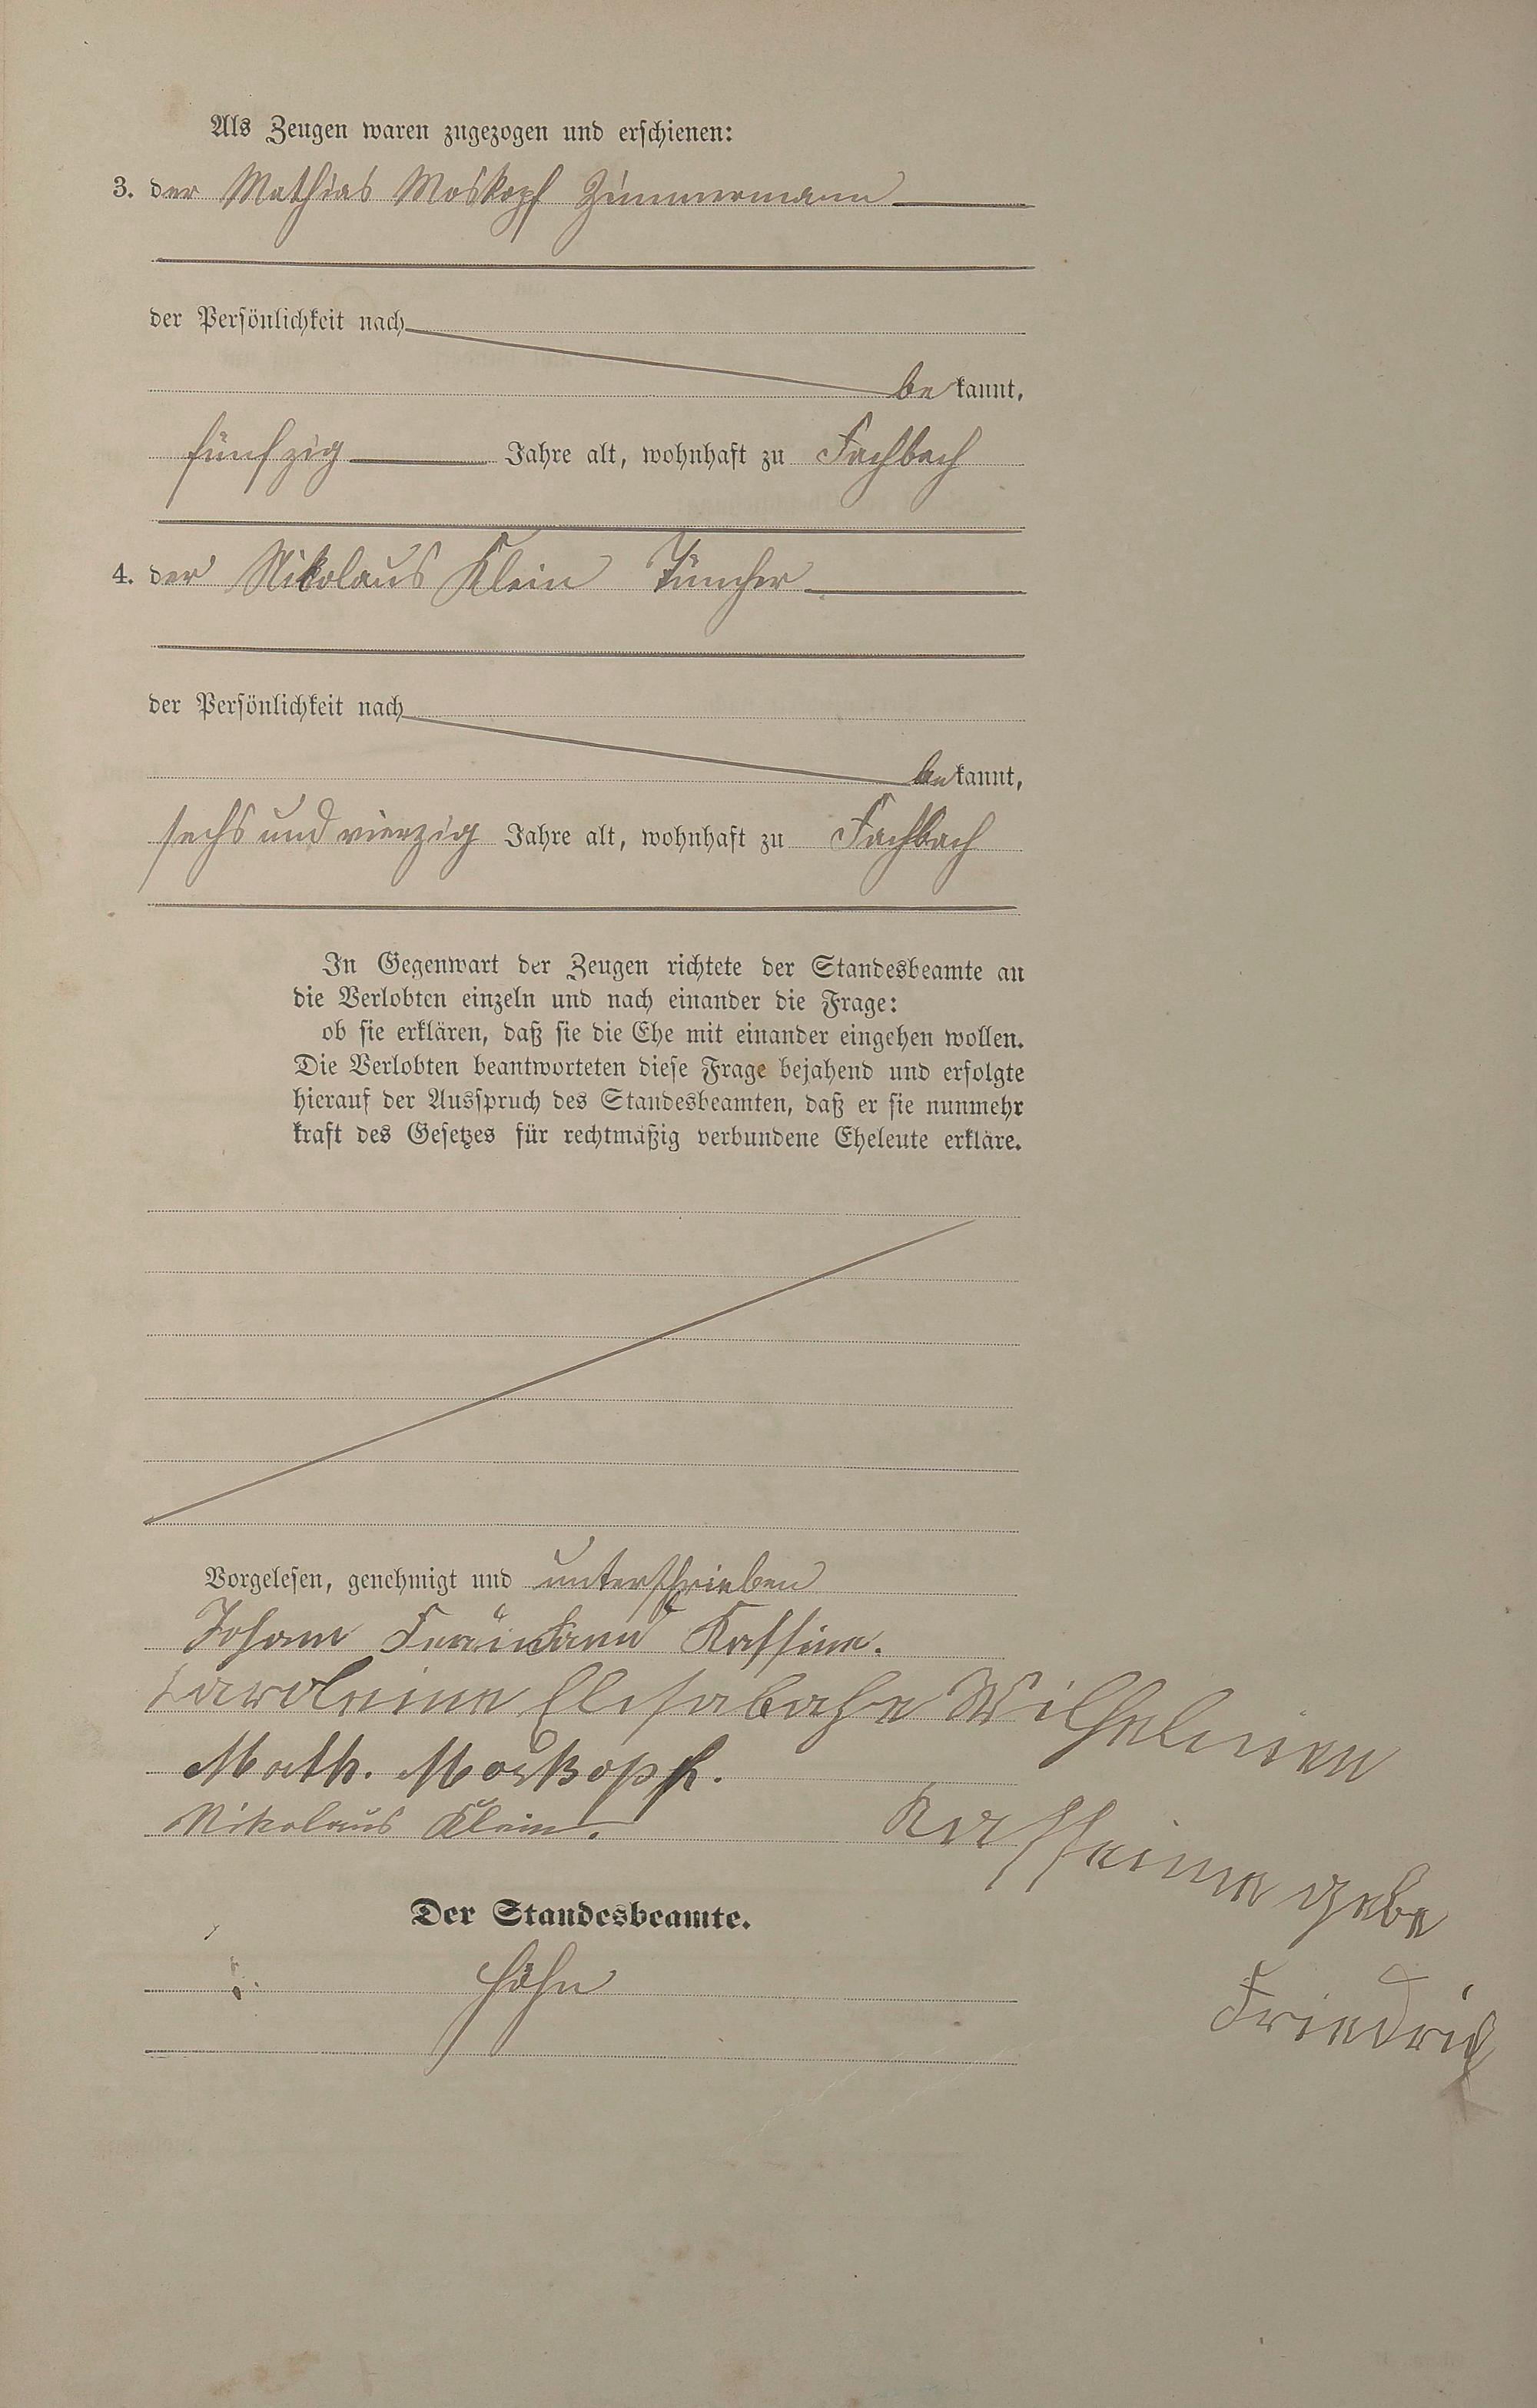 Als Zeugen waren zugezogen und erschienen:
3. der Mathias Moskopf Zimmermann
der Persönlichkeit nach
be kannt,
fünfzig Jahre alt, wohnhaft zu Fachbach
4. der Nikolaus Klein Tüncher
der Persönlichkeit nach
be kannt,
sechs und vierzig Jahre alt, wohnhaft zu Fachbach
In Gegenwart der Zeugen richtete der Standesbeamte an
die Verlobten einzeln und nach einander die Frage:
ob sie erklären, daß sie die Ehe mit einander eingehen wollen.
Die Verlobten beantworteten diese Frage bejahend und erfolgte
hierauf der Ausspruch des Standesbeamten, daß er sie nunmehr
kraft des Gesetzes für rechtmäßig verbundene Eheleute erkläre.
Vorgelesen, genehmigt und unterschrieben
Johann
Elisabethe
Math. Moskopf.
Nikolaus Klein.
gebe
Der Standesbeamte.
Friedrich
Höhn